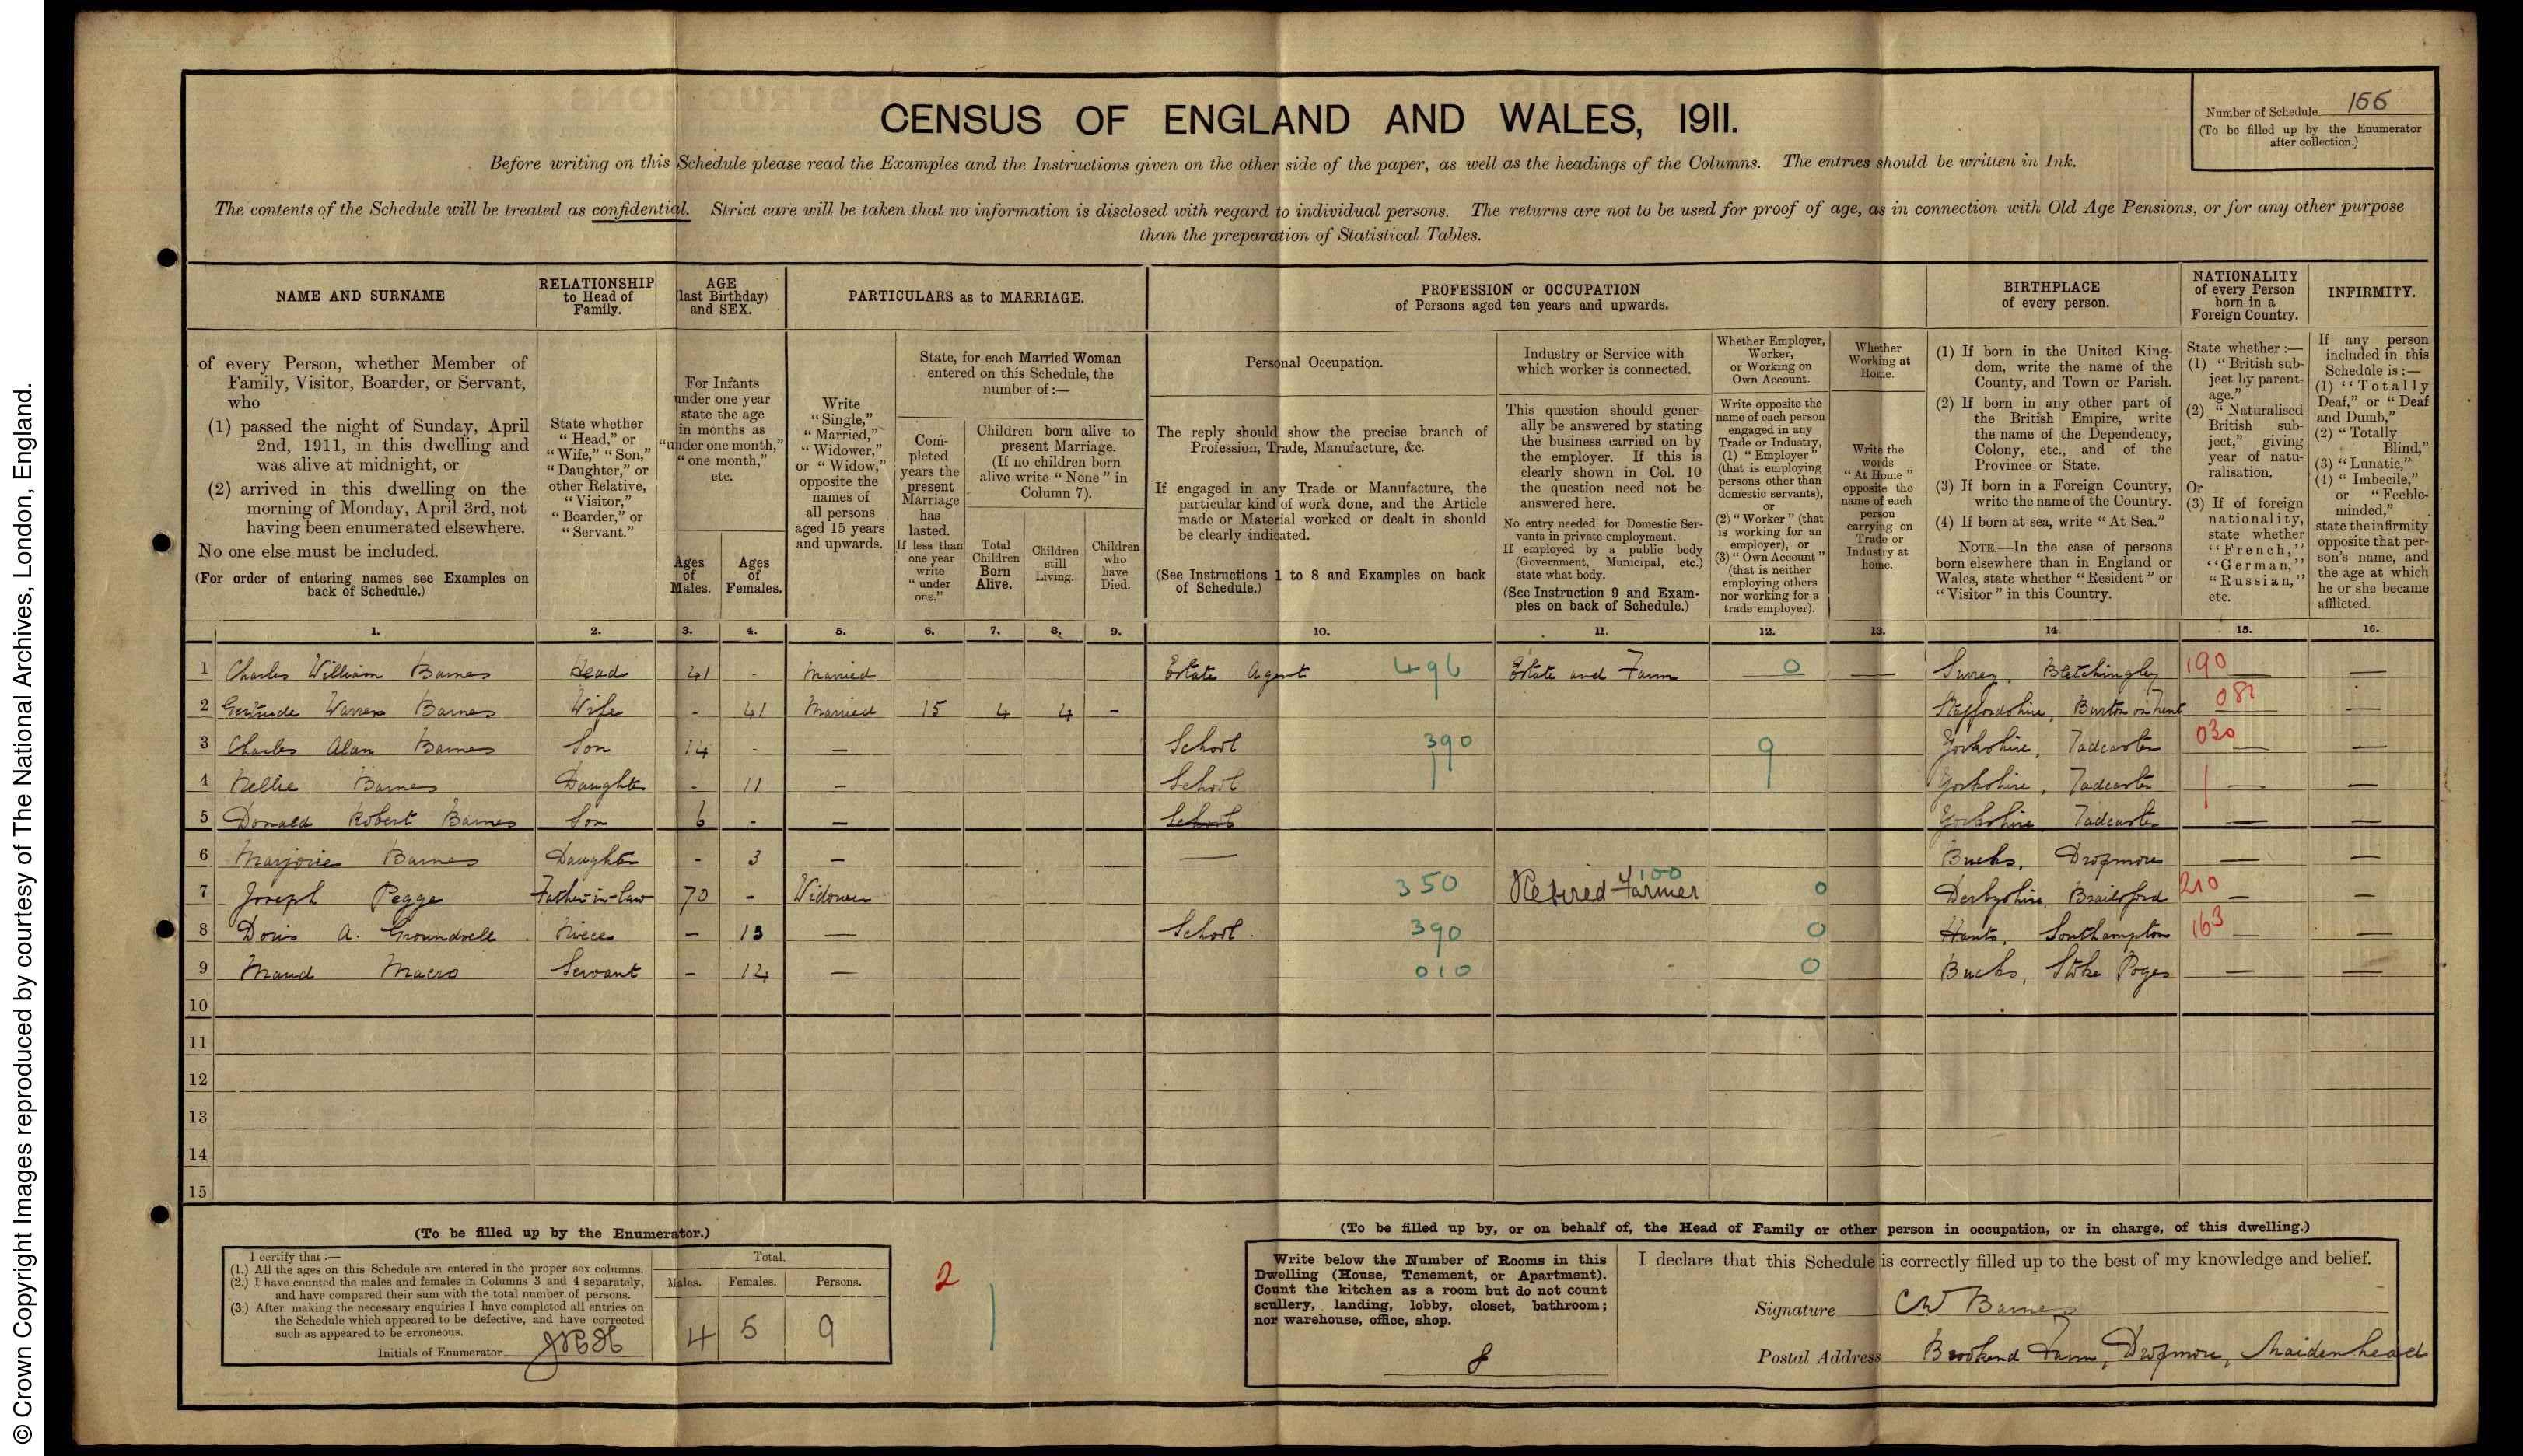 © Crown Copyright Images reproduced by courtesy of The National Archives, London, England.
CENSUS OF ENGLAND AND WALES, 1911.
Number of Schedule 166
(To be filled up by the Enumerator
after collection.)
Before writing on this Schedule please read the Examples and the Instructions given on the other side of the paper, as well as the headings of the Columns. The entries should be written in Ink.
The contents of the Schedule will be treated as confidential. Strict care will be taken that no information is disclosed with regard to individual persons. The returns are not to be used for proof of age, as in connection with Old Age Pensions, or for any other purpose
than the preparation of Statistical Tables.
NAME AND SURNAME
of every Person, whether Member of
Family, Visitor, Boarder, or Servant,
who
(1) passed the night of Sunday, April
2nd, 1911, in this dwelling and
was alive at midnight, or
(2) arrived in this dwelling on the
morning of Monday, April 3rd, not
having been enumerated elsewhere.
No one else must be included.
(For order of entering names see Examples on
back of Schedule.)
RELATIONSHIP
to Head of
Family.
State whether
"Head," or
"Wife," "Son,"
"Daughter," or
other Relative,
"Visitor,"
"Boarder," or
"Servant."
AGE
(last Birthday)
and SEX.
For Infants
under one year
state the age
in months as
"under one month,"
"one month,"
etc.
Ages
of
Males.
Ages
of
Females.
PARTICULARS as to MARRIAGE.
Write
"Single,"
"Married,"
"Widower,"
or "Widow,"
opposite the
names of
all persons
aged 15 years
and upwards.
State, for each Married Woman
entered on this Schedule, the
number of:—
Com-
pleted
years the
present
Marriage
has
lasted.
If less than
one year
write
"under
one."
Children born alive to
present Marriage.
(If no children born
alive write "None" in
Column 7).
Total
Children
Born
Alive.
Children
still
Living.
Children
who
have
Died.
PROFESSION or OCCUPATION
of Persons aged ten years and upwards.
Personal Occupation.
The reply should show the precise branch of
Profession, Trade, Manufacture, &c.
If engaged in any Trade or Manufacture, the
particular kind of work done, and the Article
made or Material worked or dealt in should
be clearly indicated.
(See Instructions 1 to 8 and Examples on back
of Schedule.)
Industry or Service with
which worker is connected.
This question should gener-
ally be answered by stating
the business carried on by
the employer. If this is
clearly shown in Col. 10
the question need not be
answered here.
No entry needed for Domestic Ser-
vants in private employment.
If employed by a public body
(Government, Municipal, etc.)
state what body.
(See Instruction 9 and Exam-
ples on back of Schedule.)
Whether Employer,
Worker,
or Working on
Own Account.
Write opposite the
name of each person
engaged in any
Trade or Industry,
(1) "Employer"
(that is employing
persons other than
domestic servants),
or
(2) "Worker" (that
is working for an
employer), or
(3) "Own Account"
(that is neither
employing others
nor working for a
trade employer).
Whether
Working at
Home.
Write the
words
"At Home"
opposite the
name of each
person
carrying on
Trade or
Industry at
home.
BIRTHPLACE
of every person.
(1) If born in the United King-
dom, write the name of the
County, and Town or Parish.
(2) If born in any other part of
the British Empire, write
the name of the Dependency,
Colony, etc., and of the
Province or State.
(3) If born in a Foreign Country,
write the name of the Country.
(4) If born at sea, write "At Sea."
NOTE.—In the case of persons
born elsewhere than in England or
Wales, state whether "Resident" or
"Visitor" in this Country.
NATIONALITY
of every Person
born in a
Foreign Country.
State whether:—
(1) "British sub-
ject by parent-
age."
(2) "Naturalised
British sub-
ject," giving
year of natu-
ralisation.
Or
(3) If of foreign
nationality,
state whether
"French,"
"German,"
"Russian,"
etc.
INFIRMITY.
If any person
included in this
Schedule is:—
(1) "Totally
Deaf," or "Deaf
and Dumb,"
(2) "Totally
Blind,"
(3) "Lunatic,"
(4) "Imbecile,"
or "Feeble-
minded,"
state the infirmity
opposite that per-
son's name, and
the age at which
he or she became
afflicted.
1. 2. 3. 4. 5. 6. 7. 8. 9. 10. 11. 12. 13. 14. 15. 16.
1 Charles William Barnes Head 41 - Married Estate Agent 496 Estate and Farm — 0 — Surrey, Bletchingley 190 — —
2 Gertrude Warren Barnes Wife - 41 Married 15 4 4 - Staffordshire, Burton on Trent 082 — —
3 Charles Alan Barnes Son 14 - — School 390 9 Yorkshire, Tadcaster 030 — —
4 Nellie Barnes Daughter - 11 — School Yorkshire, Tadcaster — —
5 Donald Robert Barnes Son 6 - — School Yorkshire Tadcaster — —
6 Marjorie Barnes Daughter - 3 — — Bucks, Dropmore — —
7 Joseph Pegge Father-in-law 70 - Widower 350 Retired Farmer 100 0 Derbyshire, Brailsford 210 — —
8 Doris A. Groundsell Niece — 13 — School. 390 0 Hants, Southampton 163 — —
9 Maud Macro Servant — 14 — 010 0 Bucks, Stoke Poges — —
10
11
12
13
14
15
(To be filled up by the Enumerator.)
I certify that:—
(1.) All the ages on this Schedule are entered in the proper sex columns.
(2.) I have counted the males and females in Columns 3 and 4 separately,
and have compared their sum with the total number of persons.
(3.) After making the necessary enquiries I have completed all entries on
the Schedule which appeared to be defective, and have corrected
such as appeared to be erroneous.
Initials of Enumerator
Total.
Males. Females. Persons.
4 5 9
2
(To be filled up by, or on behalf of, the Head of Family or other person in occupation, or in charge, of this dwelling.)
Write below the Number of Rooms in this
Dwelling (House, Tenement, or Apartment).
Count the kitchen as a room but do not count
scullery, landing, lobby, closet, bathroom;
nor warehouse, office, shop.
8
I declare that this Schedule is correctly filled up to the best of my knowledge and belief.
Signature CW Barnes
Postal Address Brookend Farm, Dropmore, Maidenhead